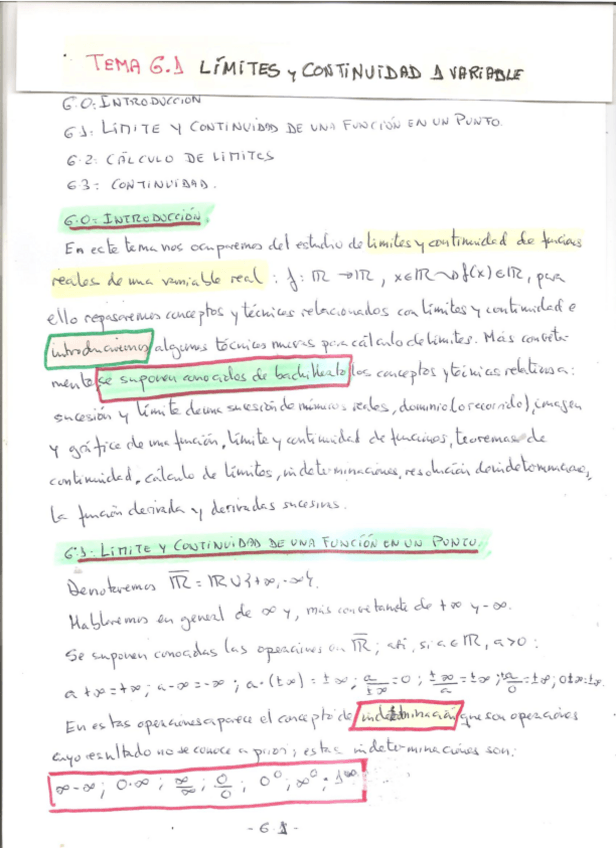 TEMA 6.1 LÍMITES y CONTINUIDAD 1 VARIABLE
6.0: INTRODUCCION
6.1: LIMITE Y CONTINUIDAD DE UNA FUNCIÓN EN UN PUNTO.
6.2: CÁLCULO DE LIMITES
6.3: CONTINUIDAD.
6.0: INTRODUCCIÓN.
En este tema nos ocuparemos del estudio de limites y continuidad de funciones
reales de una variable real : f: ℝ → ℝ, x∈ℝ ⇝ f(x)∈ℝ, para
ello repasaremos conceptos y técnicas relacionados con límites y continuidad e
introduciremos algunas técnicas nuevas para cálculo de límites. Más concreta-
mente se suponen conocidos de bachillerato los conceptos y técnicas relativos a:
sucesión y límite de una sucesión de números reales, dominio (o recorrido), imagen
y gráfica de una función, límite y continuidad de funciones, teoremas de
continuidad, cálculo de límites, indeterminaciones, resolución de indeterminaciones,
la función derivada y derivadas sucesivas.
6.1: LIMITE Y CONTINUIDAD DE UNA FUNCIÓN EN UN PUNTO.
Denotaremos ℝ̅ = ℝ∪{+∞, -∞}.
Hablaremos en general de ∞ y, más concretamente de +∞ y -∞.
Se suponen conocidas las operaciones en ℝ̅; así, si a∈ℝ, a>0:
a+∞=+∞; a-∞=-∞; a·(±∞)=±∞; a/±∞=0; ±∞/a=±∞; ±a/0=±∞; 0±∞=±∞.
En estas operaciones aparece el concepto de indeterminación que son operaciones
cuyo resultado no se conoce a priori; estas indeterminaciones son:
∞-∞; 0·∞; ∞/∞; 0/0; 0⁰; ∞⁰; 1^∞
- 6.1 -